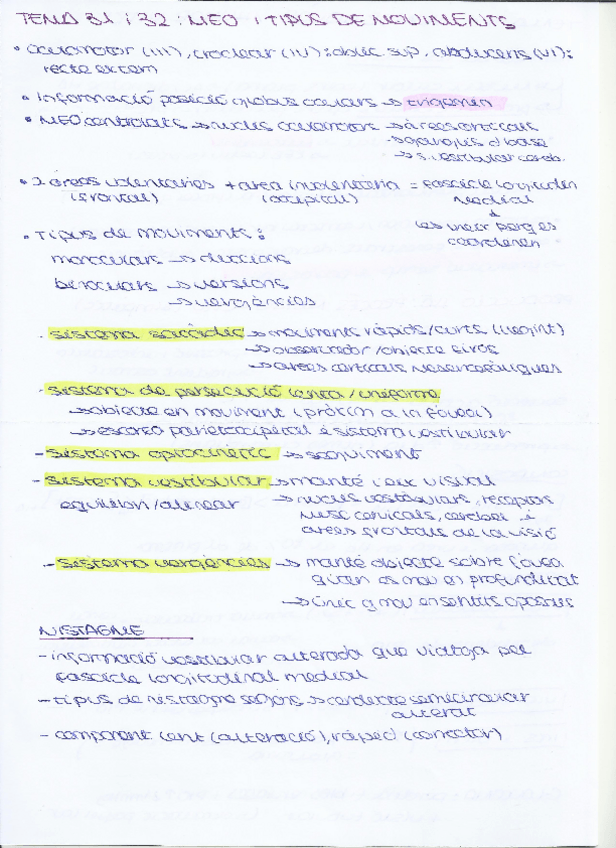 TEMA 31 i 32: MEO i TIPUS DE MOVIMENTS
• Oculomotor (III), troclear (IV): oblic sup, abducens (VI):
recte extern
• Informació posició globus oculars → trigemin
• MEO controlats → nuclis oculomotors → àrees corticals
→ s. vestibular cereb.
• 2 àrees voluntàries + àrea involuntària = fascicle longitudin
(frontal) (occipital) medial
↓
les uneix perq es
coordenen
• Tipus de moviments:
monoculars → duccions
binoculars → versions
→ vergències
- sistema sacàdic → moviments ràpids/curts (llegint)
→ observador/objecte fixos
→ àrees corticals mesencefàliques
- sistema de persecució lenta/uniforme
→ objecte en moviment (pròxim a la fòvea)
→ escorça parietooccipital i sistema vestibular
- sistema optocinètic → seguiment
- sistema vestibular → manté l'eix visual
equilibri/alinear → nuclis vestibulars, receptors
musc cervicals, cerebel i
àrees frontals de la visió
- sistema vergències → manté objecte sobre fòvea
quan es mou en profunditat
→ únic q mou en sentits oposats
NISTAGME
- informació vestibular alterada que viatja pel
fascicle longitudinal medial
- tipus de nistagme segons → conducte semicircular
alterat
- component lent (alteració), ràpid (corrector)